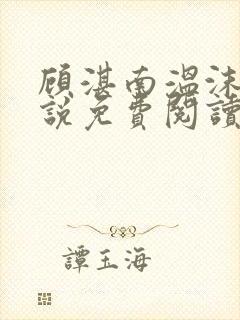 顧湛南溫沫
說免費閱讀
譚玉海